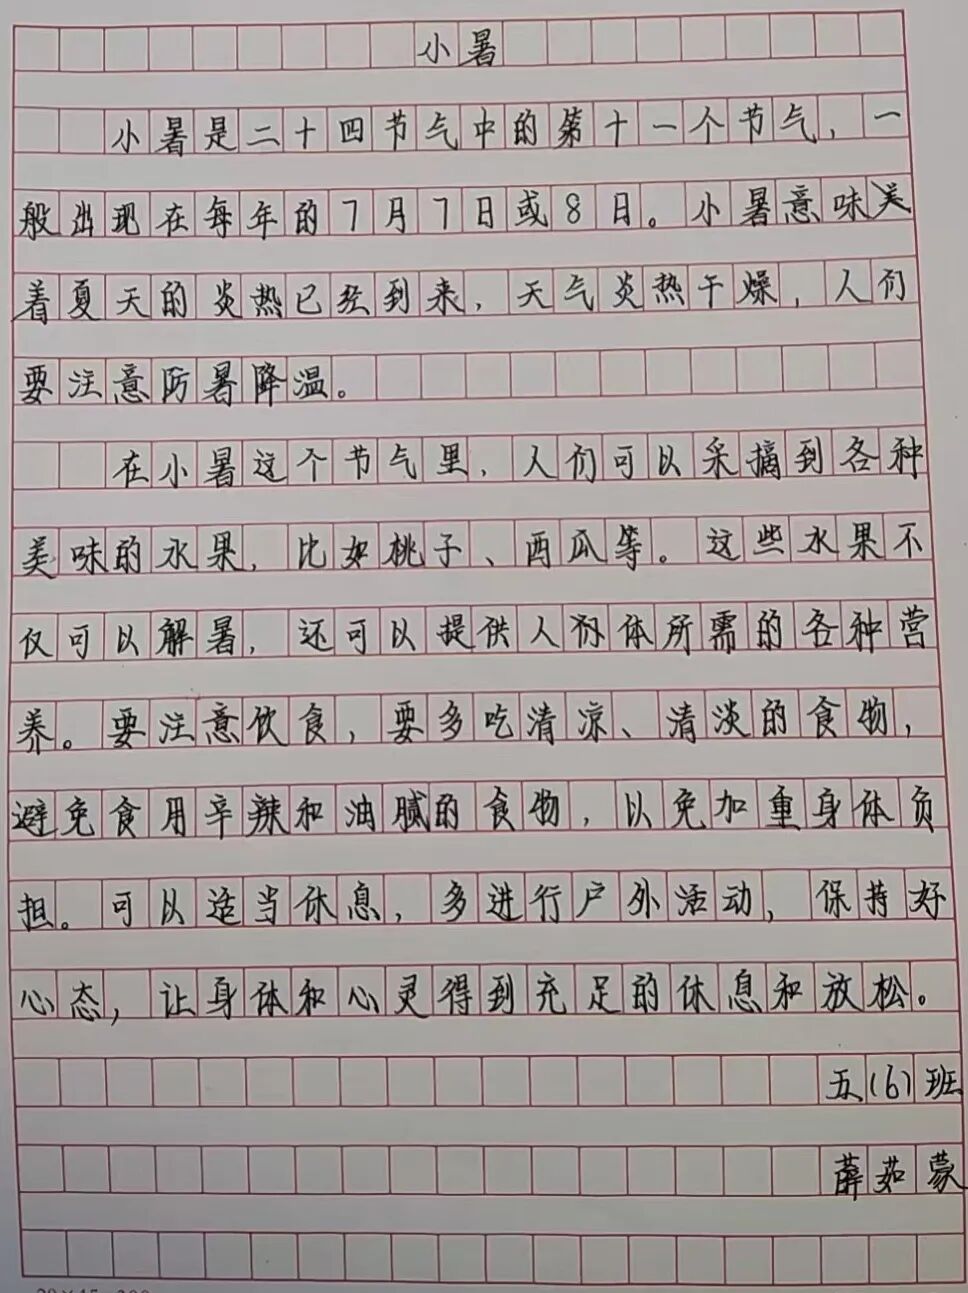 小暑
小暑是二十四节气中的第十一个节气，一
般出现在每年的7月7日或8日。小暑意味
着夏天的炎热已经到来，天气炎热干燥，人们
要注意防暑降温。
在小暑这个节气里，人们可以采摘到各种
美味的水果，比如桃子、西瓜等。这些水果不
仅可以解暑，还可以提供人体所需的各种营
养。要注意饮食，要多吃清凉、清淡的食物，
避免食用辛辣和油腻的食物，以免加重身体负
担。可以适当休息，多进行户外活动，保持好
心态，让身体和心灵得到充足的休息和放松。
五(6)班
薛茹蒙